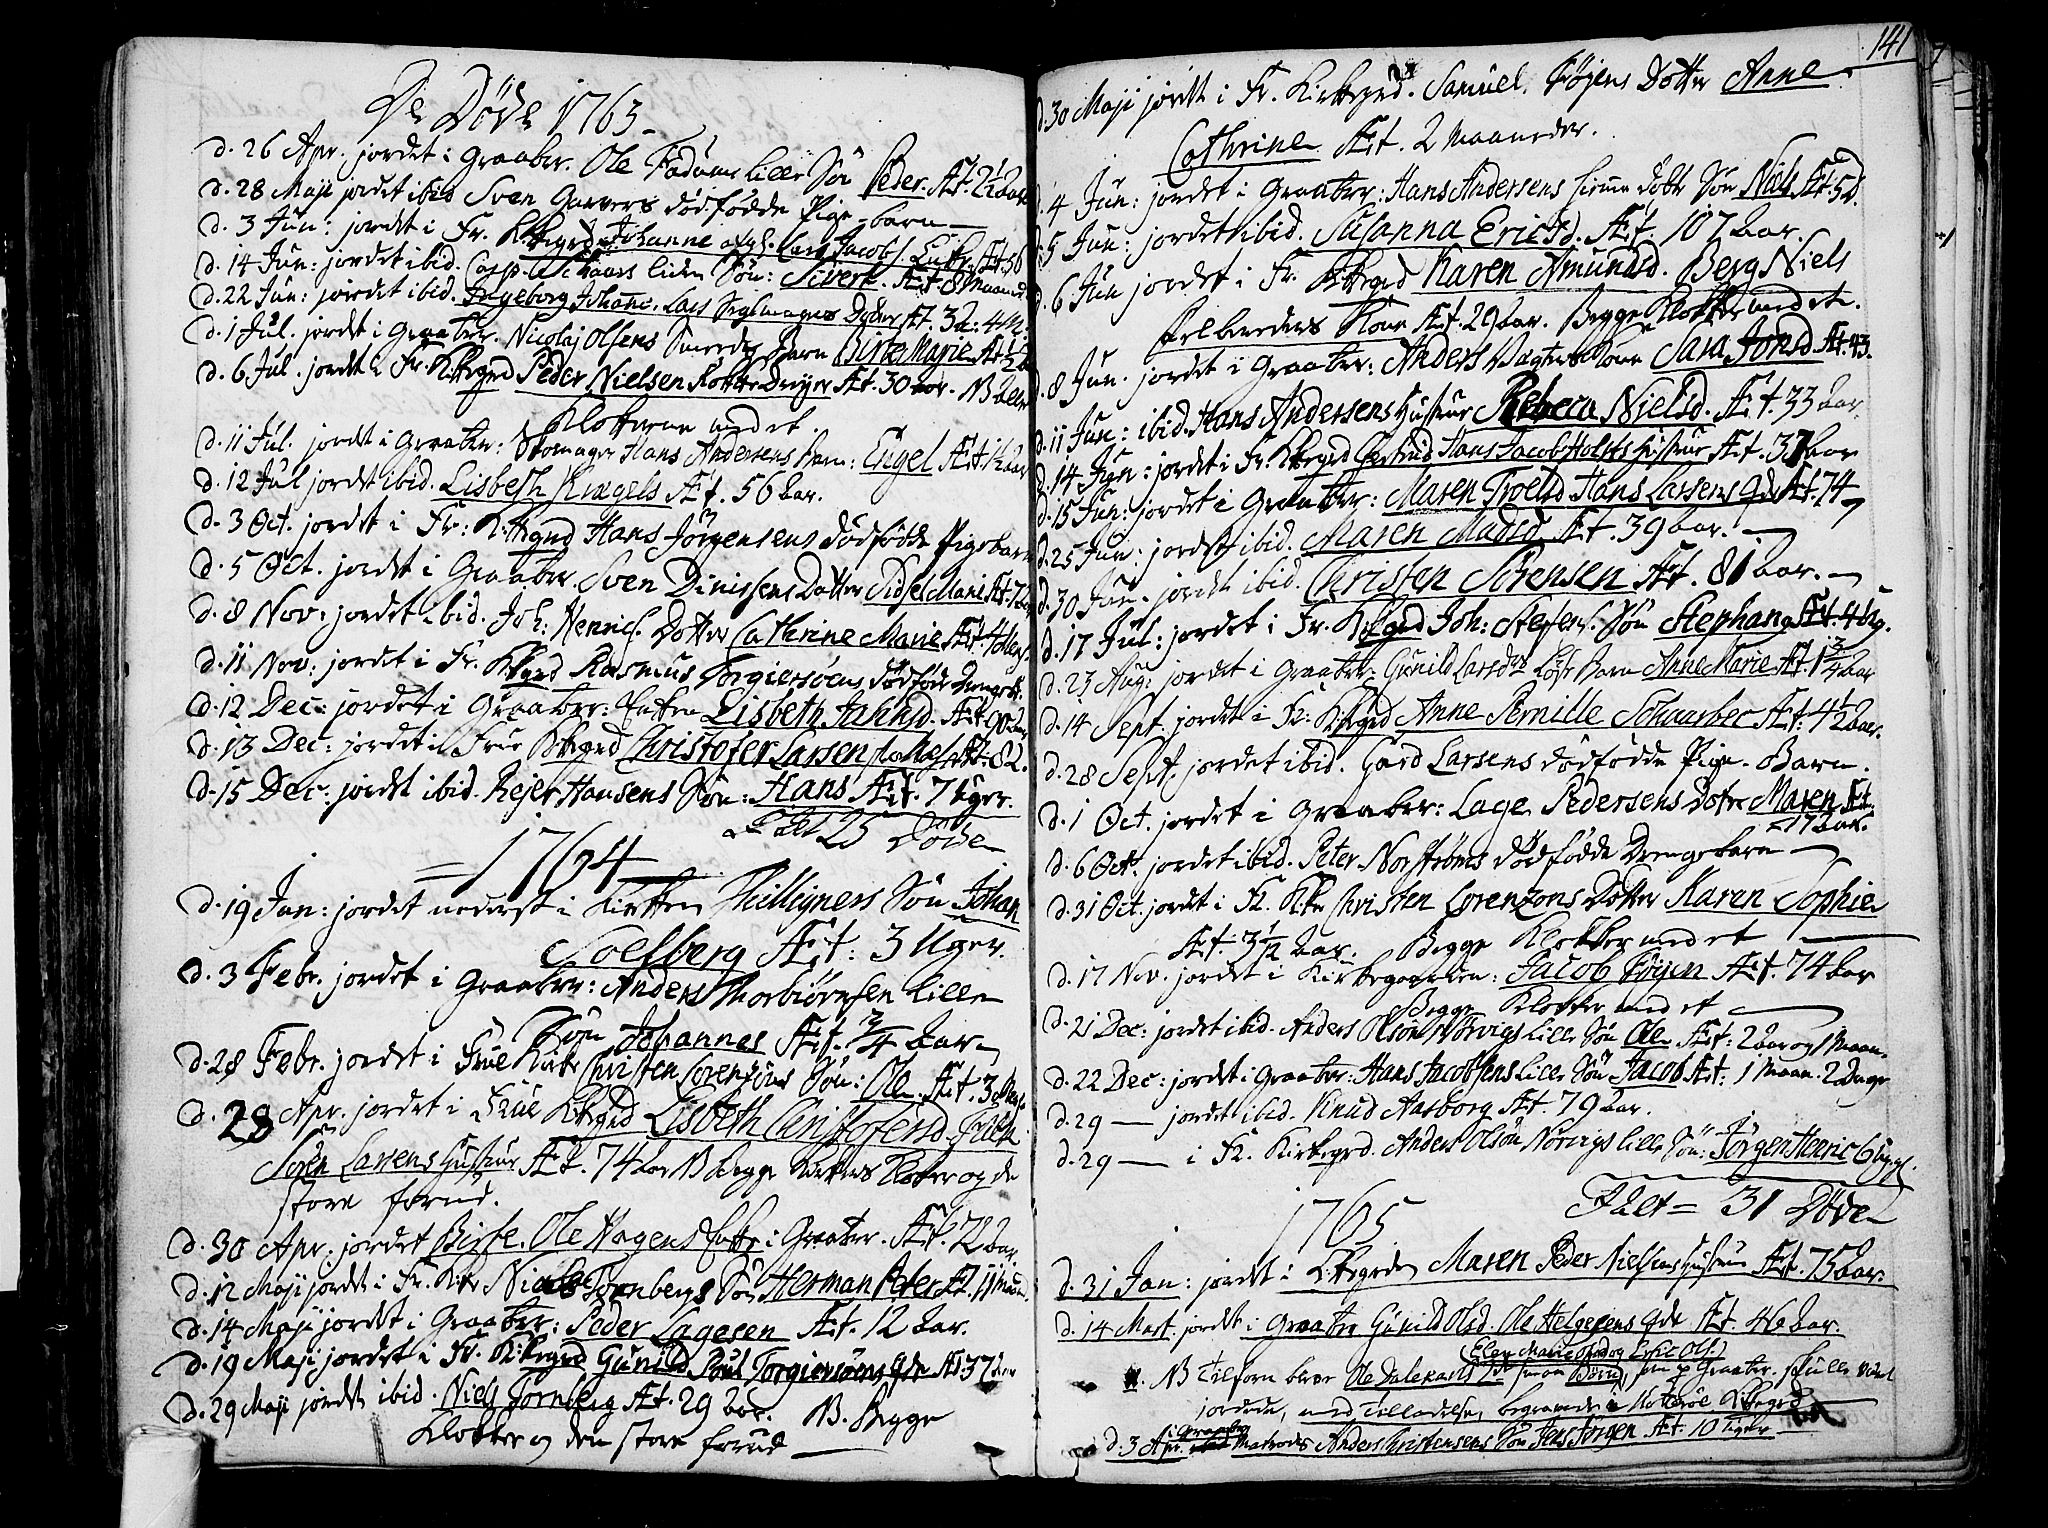 De Døde 1763
d. 26 Apr. jordet i Graabr. Ole Fadums lille Søn Peder. Æt. 2½ aar
d. 28 Maji jordet ibid Sven Garvers dødfødde Pige-barn
d. 3 Jun: jordet i Fr. Kkegrd Johanne afgl. Lars Jacobs. Enke Æt. 56
d. 14 Jun: jordet ibid. Casp. Schaars liden Søn: Sivert. Æt. 8 Maaned
d. 22 Jun: jordet ibid. Ingeborg Johanne. Lars Seglmagers Dotter Æt. 3 a: 4 M:
d. 1 Jul. jordet i Graabr. Nicolaj Olsens Smeds Barn Birte Marie Æt. ½ a
d. 6 Jul. jordet i Fr. Kkegrd Peder Nielsen Æt. 30 aar. NB alle
Klokkerne med et.
d. 11 Jul. jordet i Graabr: Skomager Hans Andersens barn: Engel Æt. 1½ aar
d. 12 Jul jordet ibid. Lisbeth Kragels Æt. 56 aar.
d. 3 Oct. jordet i Fr: Kkegrd Hans Jörgensens dødfødde Pigebarn
d. 5 Oct. jordet i Graabr. Sven Dinissens Datter Sidsel Marie Æt. 7 aar
d. 8 Nov: jordet ibid. Joh: Henrics. Dotter Cathrine Marie Æt. 4
d. 11 Nov: jordet i Fr. Kkegrd Rasmus Torgiersøens dødfødde Drengeb.
d. 12 Dec: jordet i Graabr: Enken Lisbeth Jahnsd. Æt. 90 aar
d. 13 Dec: jordet i Frue Kkegrd Christofer Larsen Æt. 82.
d. 15 Dec: jordet ibid. Rejer Hansens Søn: Hans Æt. 7 uger.
Ialt 25 Døde
1764
d. 19 Jan: jordet nederst i Kirken Søn Johan
Soelberg Æt: 3 Uger.
d. 3 Febr. jordet i Graabr: Anders Thorbiörnsen lille
Søn Johannes Æt. ¾ aar
d. 28 Febr. jordet i Frue Kirke Christen Lorensöns Søn: Ole Æt. 3
d. 28 Apr. jordet i Frue Kkegrd Lisbeth Christofersd.
Sören Larsens Hustrue Æt. 74 aar NB Begge Kirkens Klokker og de
store forud.
d. 30 Apr. jordet Birte. Ole Hagens Enke i Graabr. Æt. 72 aar.
d. 12 Maji jordet i Fr. Kke Niels Tornbergs Søn Herman Peter Æt. 11 Maan.
d. 14 Maji jordet i Graabr: Peder Lagesen Æt. 12 aar.
d. 19 Maji jordet i Fr. Kkegrd Gunild Poul Torgiersöns Qde Æt 37 aar
d. 29 Maji jordet ibid. Niels Tornberg Æt. 29 aar. NB. Begge
Klokker og den store forud
141
d. 30 Maji jordet i Fr. Kirkegrd. Samuel Föjens Dotter Anne
Cathrine Æt. 2 Maaneder.
d. 4 Jun: jordet i Graabr: Hans Andersens hiemme døbt Søn Niels Æt. 5 d.
d. 5 Jun: jordet ibid. Susanna Ericsd. Æt. 107 aar.
d. 6 Jun jordet i Fr. Kkegrd Karen Amundsd. Berg Niels
Kone Æt. 29 aar. Begge Klokker med et.
d. 8 Jun. jordet i Graabr: Anders Vægters Kone Sara Jonsd Æt. 43.
d. 11 Jun: ibid. Hans Andersens Hustrue Rebecca Nielsd. Æt. 33 aar
d. 14 Jun: jordet i Fr. Kkegrd Giertrud Hans Jacob Holsts Hustrue Æt. 37 aar
d. 15 Jun: jordet i Graabr: Maren Troelsd Hans Larsens Qde Æt. 74
d. 25 Jun: jordet ibid. Maren Madsd Æt. 39 aar.
d. 30 Jun. jordet ibid. Christen Sörensen Æt. 81 aar.
d. 17 Jul: jordet i Fr. Kkegrd Joh: Stefens. Søn Stephan Æt. 4 Ug.
d. 23 Aug: jordet i Graabr: Gunild Larsd Barn Anne Marie Æt. 1¾ aar
d. 14 Sept jordet i Fr. Kkegrd Anne Pernille Schaarbec Æt: 4½ aar.
d. 28 Sept. jordet ibid. Gard Larsens dödfödde Pige-Barn.
d. 1 Oct. jordet i Graabr: Lage Pedersens Dotr Maren Æt.
17 aar.
d. 6 Oct. jordet ibid. Peter Norströms dödfödde Drengebarn
d. 31 Oct. jordet i Fr. Kke Christen Lorenzons Dotter Karen Sophie
Æt. 3 1/12 aar. Begge Klokker med et
d. 17 Nov. jordet i Kirkegaarden: Jacob Föjen Æt. 74 aar
Begge Klokker med et
d. 21 Dec: jordet ibid. Anders Olsøn Norvigs lille Søn Ole Æt: 2 aar og 1 Maan.
d. 22 Dec: jordet i Graabr: Hans Jacobsens lille Søn Jacob Æt: 1 Maan. 2 Dage
d. 29 — jordet ibid. Knud Aasborg Æt. 79 aar.
d. 29 — i Fr. Kirkegrd. Anders Olsön Norvigs lille Søn: Jörgen Henric 6 uger.
Ialt = 31 Døde
1765
d. 31 Jan: jordet i Kkegrden Maren Peder Nielsens Hustrue Æt. 75 aar.
d. 14 Mart. jordet i Graabr Gunild Olsd. Ole Helgesens Qde Æt. 46 aar.
(Elen Marie Olsd og Eric Ols.)
NB Tilforn bleve Ole Dalekarls smaa Börn, som p Graabr. skulle vært
jordede, med Tilladelse, begravede i Kkegrd
i Graabr
d. 3 Apr. Matrods Anders Christensens Søn Jens Jörgen Æt. 10 Uger